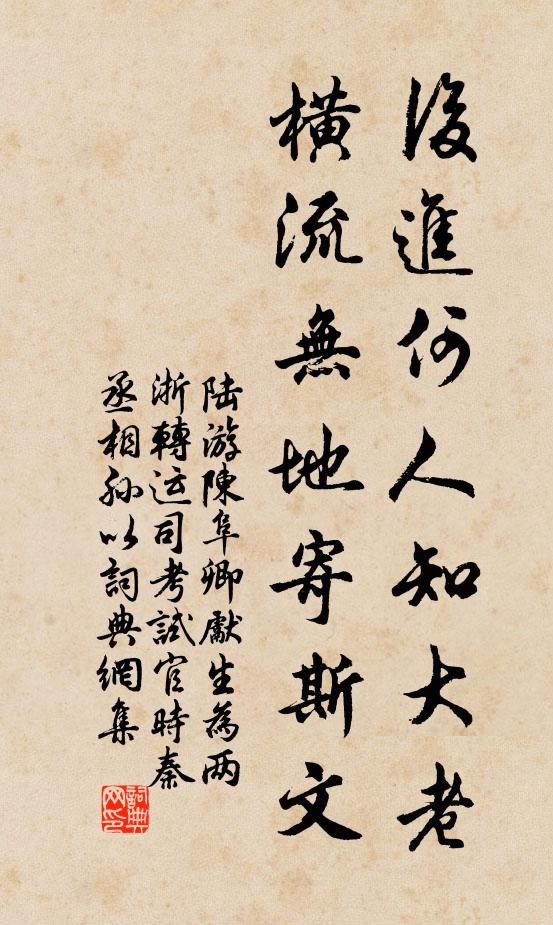 後進何人知大老
橫流無地寄斯文
陆游陳阜卿獻生為两
浙轉运司考試官時秦
丞相孙以詞典網集
詞典
网印